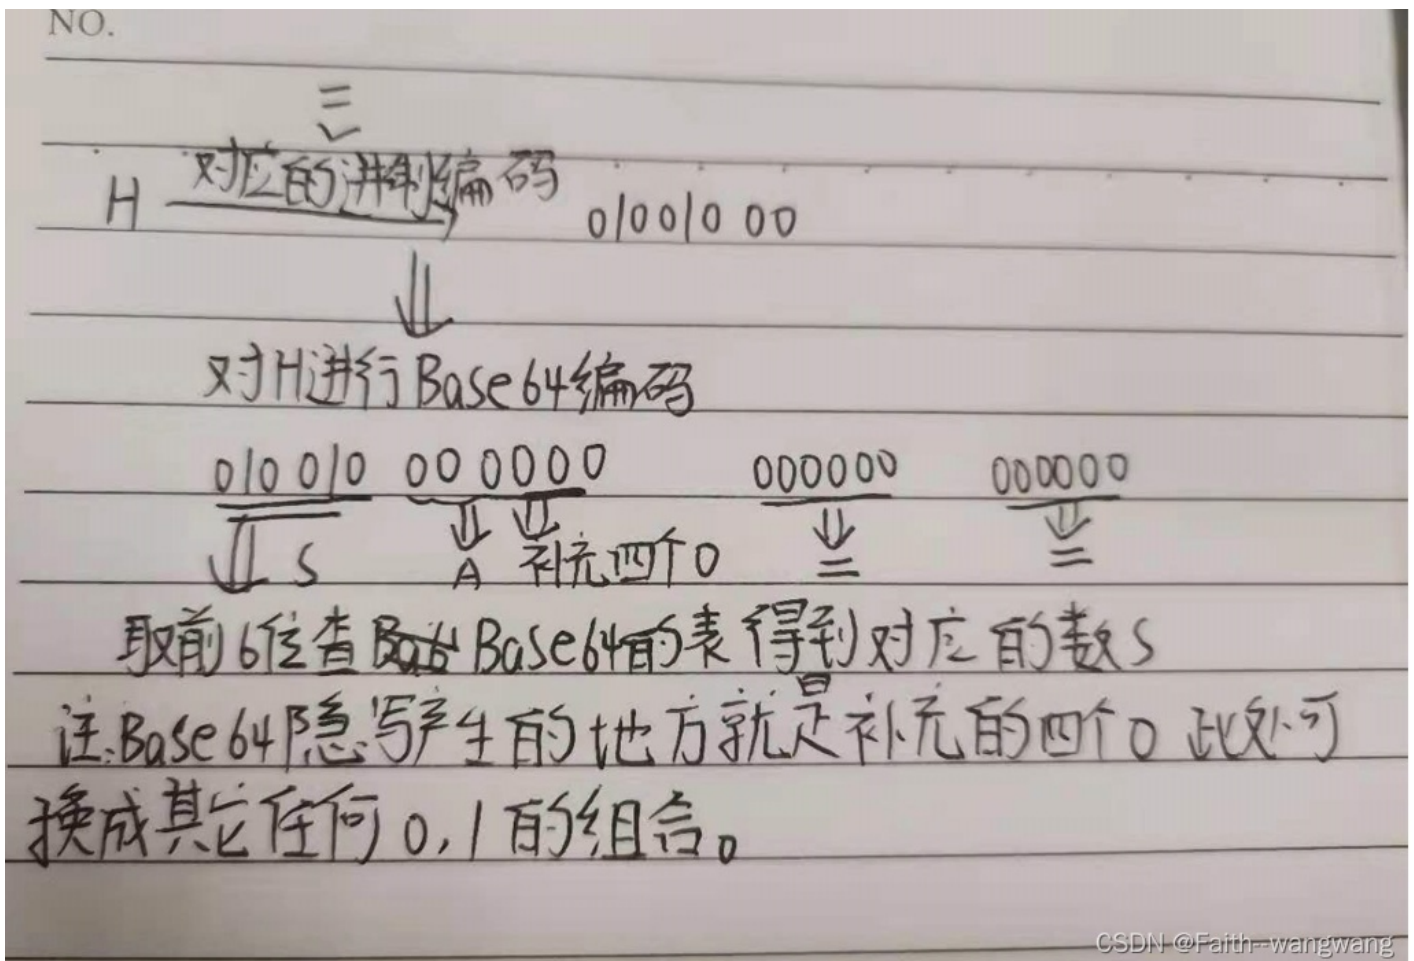 NO.
二
对应的进制编码
H 01001000
对H进行Base64编码
010010 000000 000000 000000
S A 补充四个0 = =
取前6位查 Base64的表得到对应的数S
注:Base64隐写产生的地方就是补充的四个0 此处可
换成其它任何0,1的组合。
CSDN @Faith--wangwang